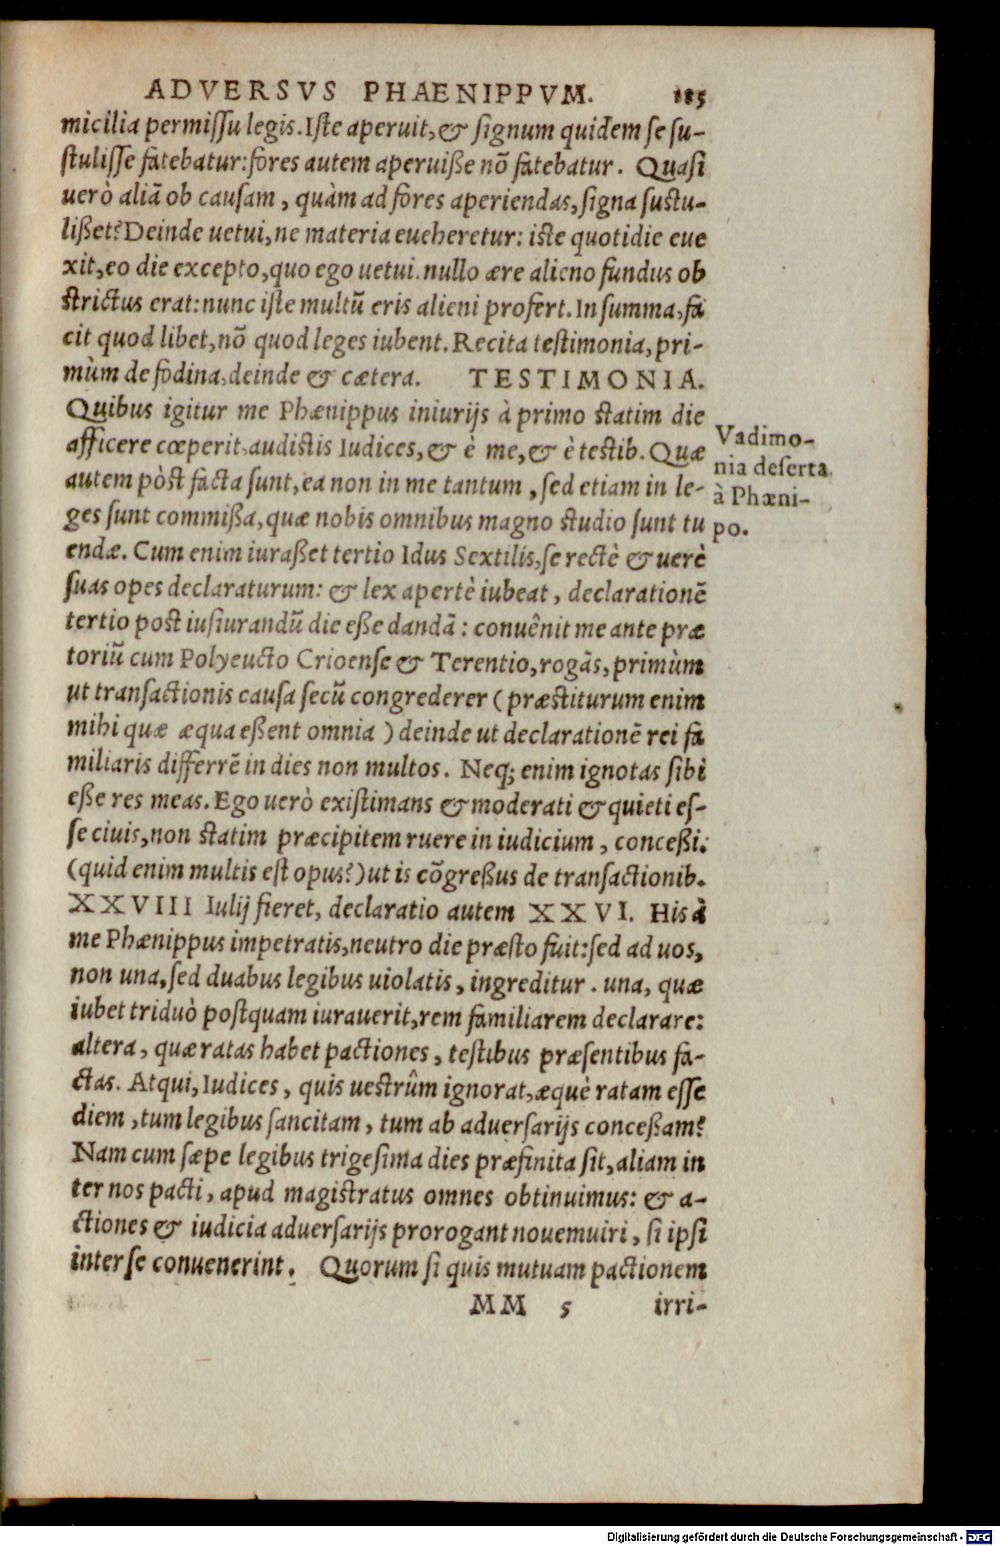 ADVERSVS PHAENIPPVM. 185
micilia permissu legis. Iste aperuit, & signum quidem se su-
stulisse fatebatur: fores autem aperuiße nõ fatebatur. Quasi
uerò aliã ob causam, quàm ad fores aperiendas, signa sustu-
lißet? Deinde uetui, ne materia eueheretur: iste quotidie eue
xit, eo die excepto, quo ego uetui. nullo ære alieno fundus ob
strictus erat: nunc iste multũ eris alieni profert. In summa, fa
cit quod libet, nõ quod leges iubent. Recita testimonia, pri-
mùm de fodina, deinde & cætera. TESTIMONIA.
Quibus igitur me Phænippus iniurijs à primo statim die
afficere cœperit, audistis Iudices, & è me, & è testib. Quæ
autem pòst facta sunt, ea non in me tantum, sed etiam in le-
ges sunt commißa, quæ nobis omnibus magno studio sunt tu
endæ. Cum enim iuraßet tertio Idus Sextilis, se rectè & uerè
suas opes declaraturum: & lex apertè iubeat, declarationẽ
tertio post iusiurandũ die eße dandã: conuênit me ante præ
toriũ cum Polyeucto Crioense & Terentio, rogãs, primùm
ut transactionis causa secũ congrederer (præstiturum enim
mihi quæ æqua eßent omnia) deinde ut declarationẽ rei fa
miliaris differrẽ in dies non multos. Neq; enim ignotas sibi
eße res meas. Ego uerò existimans & moderati & quieti es-
se ciuis, non statim præcipitem ruere in iudicium, conceßi.
(quid enim multis est opus?) ut is cõgreßus de transactionib.
XXVIII Iulij fieret, declaratio autem XXVI. His à
me Phænippus impetratis, neutro die præsto fuit: sed ad uos,
non una, sed duabus legibus uiolatis, ingreditur. una, quæ
iubet triduò postquam iurauerit, rem familiarem declarare:
altera, quæ ratas habet pactiones, testibus præsentibus fa-
ctas. Atqui, Iudices, quis uestrûm ignorat, æquè ratam esse
diem, tum legibus sancitam, tum ab aduersarijs conceßam?
Nam cum sæpe legibus trigesima dies præfinita sit, aliam in
ter nos pacti, apud magistratus omnes obtinuimus: & a-
ctiones & iudicia aduersarijs prorogant nouemuiri, si ipsi
inter se conuenerint. Quorum si quis mutuam pactionem
MM 5 irri-
Vadimo-
nia deserta
à Phæni-
po.
Digitalisierung gefördert durch die Deutsche Forschungsgemeinschaft - DFG